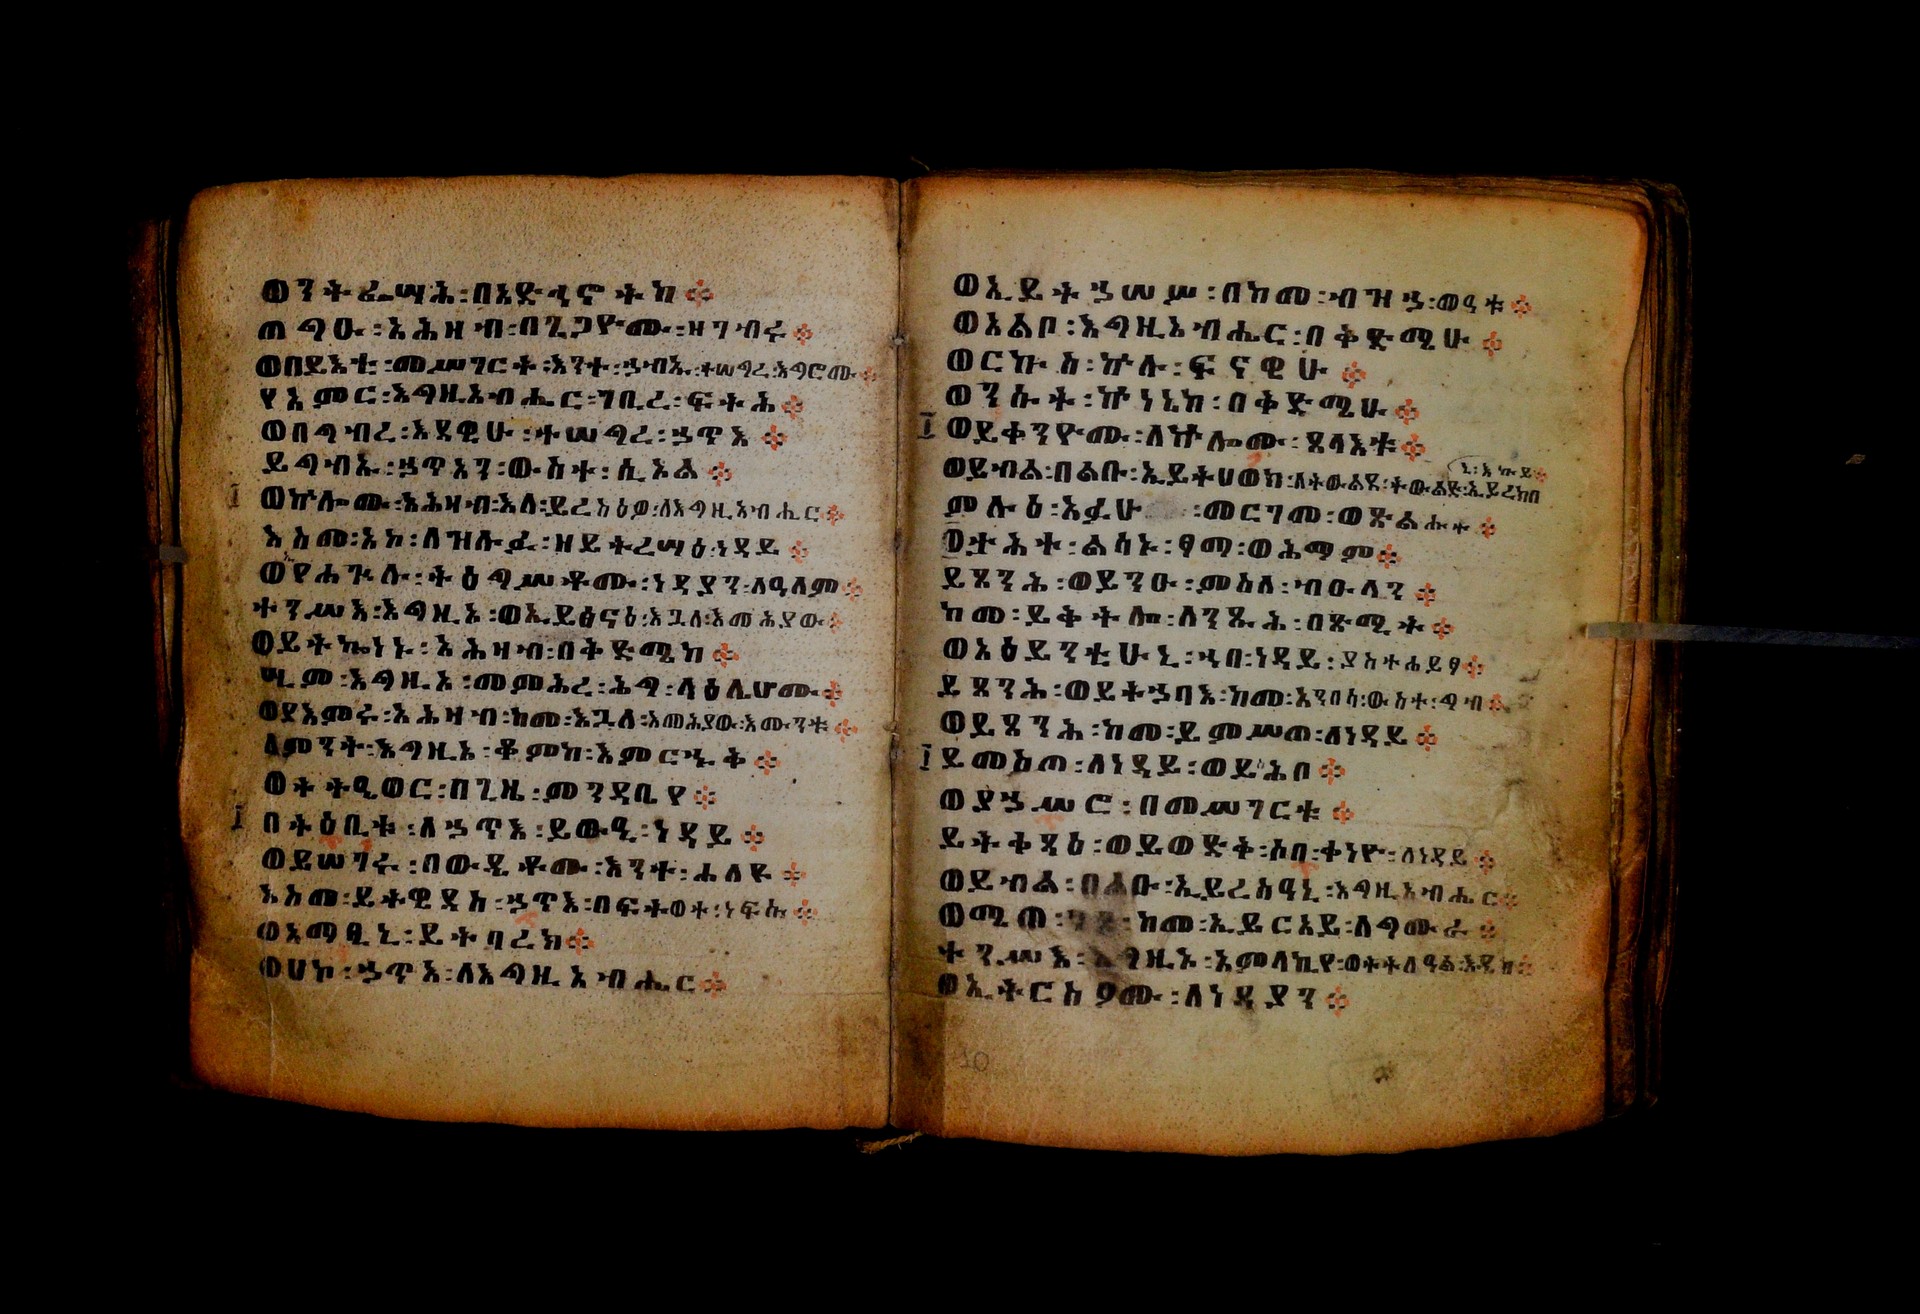 ወንትፌሣሕ፡በአድኅኖትከ፨
ጠግዑ፡አሕዛብ፡በጌጋዮሙ፡ዘገብሩ፨
ወበይእቲ፡መሥገርት፡እንተ፡ኃብኡ፡ተሠግረ፡እግሮሙ፨
የአምር፡እግዚአብሔር፡ገቢረ፡ፍትሕ፨
ወበግብረ፡እደዊሁ፡ተሠግረ፡ኃጥእ፨
ይግብኡ፡ኃጥአን፡ውስተ፡ሲኦል፨
ወኵሎሙ፡አሕዛብ፡እለ፡ይረስዕዎ፡ለእግዚአብሔር፨
እስመ፡አኮ፡ለዝሉፉ፡ዘይትረሣዕ፡ነዳይ፨
ወኢየሐጕሉ፡ትዕግሥቶሙ፡ነዳያን፡ለዓለም፨
ተንሥእ፡እግዚኦ፡ወኢይፅናዕ፡እጓለ፡እመሕያው፨
ወይትኰነኑ፡አሕዛብ፡በቅድሜከ፨
ሢም፡እግዚኦ፡መምሕረ፡ሕግ፡ላዕሌሆሙ፨
ወያእምሩ፡አሕዛብ፡ከመ፡እጓለ፡እመሕያው፡እሙንቱ፨
ለምንት፡እግዚኦ፡ቆምከ፡እምርኁቅ፨
ወትትዔወር፡በጊዜ፡ምንዳቤየ፨
በትዕቢቱ፡ለኃጥእ፡ይውዒ፡ነዳይ፨
ወይሠገሩ፡በውዴቶሙ፡እንተ፡ሐለዩ፨
እስመ፡ይትዌደስ፡ኃጥእ፡በፍትወተ፡ነፍሱ፨
ወአማፂኒ፡ይትባረክ፨
ወሀከ፡ኃጥእ፡ለእግዚአብሔር፨
ወኢይትኃሠሥ፡በከመ፡ብዝኃ፡መዓቱ፨
ወአልቦ፡እግዚአብሔር፡በቅድሜሁ፨
ወርኩስ፡ኵሉ፡ፍናዊሁ፨
ወንሱት፡ኵነኔከ፡በቅድሜሁ፨
ወይቀንዮሙ፡ለኵሎሙ፡ጸላእቱ፨
ወይብል፡በልቡ፡ኢይትሀወክ፡ለትውልደ፡ትውልድ፡ኢይረክበኒ፡እኩይ፨
ምሉዕ፡አፉሁ፡መርገመ፡ወጽልሑተ፨
ወታሕተ፡ልሳኑ፡ፃማ፡ወሕማም፨
ይጸንሕ፡ወይንዑ፡ምስለ፡ብዑላን፨
ከመ፡ይቅትሎ፡ለንጹሕ፡በጽሚት፨
ወአዕይንቲሁኒ፡ኀበ፡ነዳይ፡ያስተሐይፃ፨
ይጸንሕ፡ወይትኃባእ፡ከመ፡አንበሳ፡ውስተ፡ግብ፨
ወይጸንሕ፡ከመ፡ይምሥጦ፡ለነዳይ፨
ይመስጦ፡ለነዳይ፡ወይስሕቦ፨
ወያኃሥሮ፡በመሥገርቱ፨
ይትቀጻዕ፡ወይወድቅ፡ሶበ፡ቀነዮ፡ለነዳይ፨
ወይብል፡በልቡ፡ኢይረስዓኒ፡እግዚአብሔር፨
ወሜጠ፡ገጾ፡ከመ፡ኢይርአይ፡ለግሙራ፨
ተንሥእ፡እግዚኦ፡አምላኪየ፡ወትትለዓል፡እዴከ፨
ወኢትርስዖሙ፡ለነዳያን፨
10